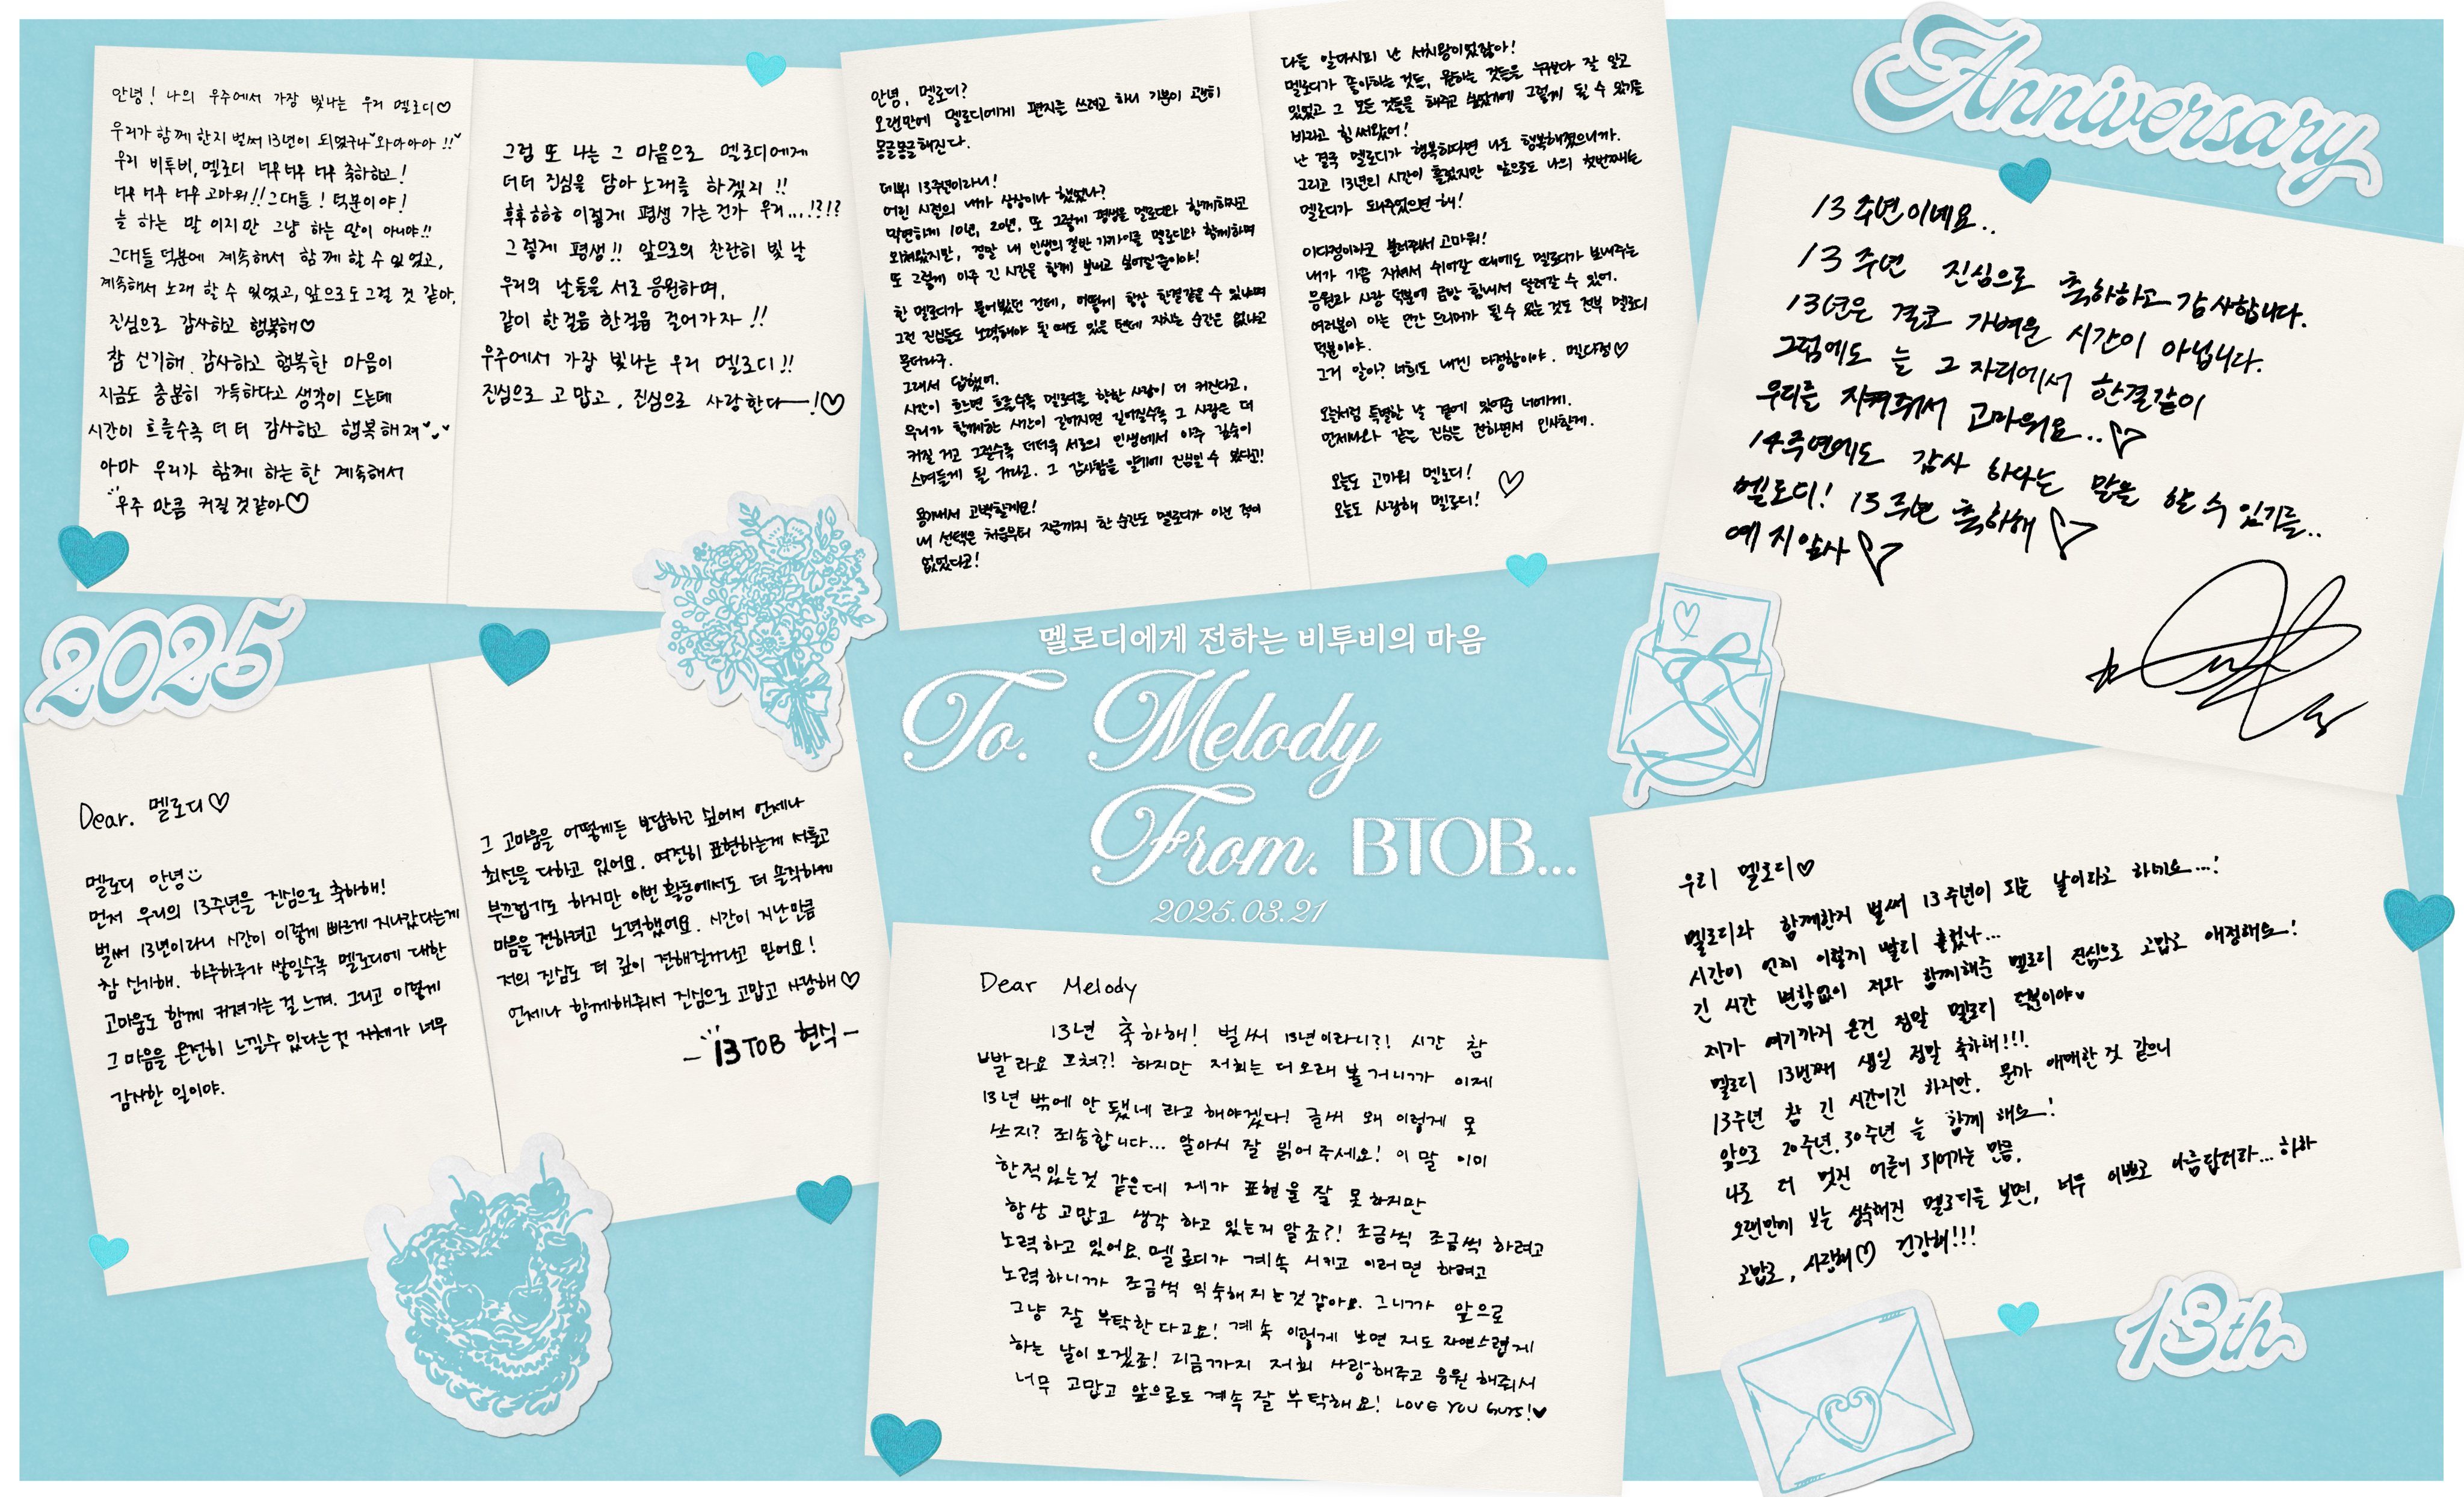 안녕! 나의 우주에서 가장 빛나는 우리 멜로디♡
우리가 함께 한지 벌써 13년이 되었구나 와아아아!!
우리 비투비, 멜로디 너무너무 너무 축하하고!
너무 너무 너무 고마워!! 그대들! 덕분이야!
늘 하는 말 이지만 그냥 하는 말이 아니야!!
그대들 덕분에 계속해서 함께 할 수 있었고,
계속해서 노래 할 수 있었고, 앞으로도 그럴 것 같아.
진심으로 감사하고 행복해♡
참 신기해. 감사하고 행복한 마음이
지금도 충분히 가득하다고 생각이 드는데
시간이 흐를수록 더 더 감사하고 행복해져
아마 우리가 함께 하는 한 계속해서
우주 만큼 커질 것 같아♡
그럼 또 나는 그 마음으로 멜로디에게
더더 진심을 담아 노래를 하겠지!!
후후흐흐 이렇게 평생 가는건가 우리...!?!?
그렇게 평생!! 앞으로의 찬란히 빛 날
우리의 날들을 서로 응원하며,
같이 한걸음 한걸음 걸어가자!!
우주에서 가장 빛나는 우리 멜로디!!
진심으로 고맙고, 진심으로 사랑한다—!♡
안녕, 멜로디?
오랜만에 멜로디에게 편지를 쓰려고 하니 기분이 괜히
몽글몽글해진다.
데뷔 13주년이라니!
어린 시절의 내가 상상이나 했었나?
막연하게 10년, 20년, 또 그렇게 평생을 멜로디와 함께하자고
외쳐왔지만, 정말 내 인생의 절반 가까이를 멜로디와 함께하며
또 그렇게 아주 긴 시간을 함께 보내고 싶어질줄이야!
한 멜로디가 물어봤던 건데, 어떻게 항상 한결같을 수 있냐며
그런 진심들도 노력해야 될 때도 있을 텐데 지치는 순간은 없냐고
묻더라구.
그래서 답했어.
시간이 흐르면 흐를수록 멜로디를 향한 사랑이 더 커진다고,
우리가 함께한 시간이 길어지면 길어질수록 그 사랑은 더
커질 거고 그럴수록 더더욱 서로의 인생에서 아주 깊숙이
스며들게 될 거라고. 그 감사함을 알기에 진심일 수 있다고!
용기내서 고백할게요!
내 선택은 처음부터 지금까지 한 순간도 멜로디가 아닌 적이
없었다고!
다들 알다시피 난 서치왕이었잖아!
멜로디가 좋아하는 것들, 원하는 것들을 누구보다 잘 알고
있었고 그 모든 것들을 해주고 싶었기에 그렇게 될 수 있기를
바라고 힘써왔어!
난 결국 멜로디가 행복하다면 나도 행복해졌으니까.
그리고 13년의 시간이 흘렀지만 앞으로도 나의 첫번째는
멜로디가 돼주었으면 해!
이다정이라고 불러줘서 고마워!
내가 가끔 지쳐서 쉬어갈 때에도 멜로디가 보내주는
응원과 사랑 덕분에 금방 힘내서 달려갈 수 있어.
여러분이 아는 만간 드리머가 될 수 있는 것도 전부 멜로디
덕분이야.
그거 알아? 너희도 내겐 다정함이야. 멜다정♡
오늘처럼 특별한 날 곁에 있어준 너에게.
언제나와 같은 진심을 전하면서 인사할게.
오늘도 고마워 멜로디!
오늘도 사랑해 멜로디! ♡
Anniversary
13주년이네요..
13주년 진심으로 축하하고 감사합니다.
13년은 결코 가벼운 시간이 아닙니다.
그럼에도 늘 그 자리에서 한결같이
우리를 지켜줘서 고마워요..♡
14주년에도 감사 하다는 말을 할 수 있기를..
멜로디! 13주년 축하해♡
예지앞사♡
2025
멜로디에게 전하는 비투비의 마음
To. Melody
From. BTOB...
2025.03.21
Dear. 멜로디♡
멜로디 안녕
먼저 우리의 13주년을 진심으로 축하해!
벌써 13년이라니 시간이 이렇게 빠르게 지나갔다는게
참 신기해. 하루하루가 쌓일수록 멜로디에 대한
고마움도 함께 커져가는 걸 느껴. 그리고 이렇게
그 마음을 온전히 느낄수 있다는것 자체가 너무
감사한 일이야.
그 고마움을 어떻게든 보답하고 싶어서 언제나
최선을 다하고 있어요. 여전히 표현하는게 서툴고
부끄럽기도 하지만 이번 활동에서도 더 솔직하게
마음을 전하려고 노력했어요. 시간이 지난만큼
저의 진심도 더 깊이 전해질거라고 믿어요!
언제나 함께해줘서 진심으로 고맙고 사랑해♡
- 13TOB 현식 -
Dear Melody
13년 축하해! 벌써 13년이라니?! 시간 참
빨라요 그쳐?! 하지만 저희는 더 오래 볼거니까 이제
13년 밖에 안 됐네 라고 해야겠다! 글씨 왜 이렇게 못
쓰지? 죄송합니다... 알아서 잘 읽어주세요! 이 말 이미
한적있는것 같은데 제가 표현을 잘 못하지만
항상 고맙고 생각 하고 있는지 알죠?! 조금씩 조금씩 하려고
노력하고 있어요. 멜로디가 계속 시키고 이러면 하려고
노력하니까 조금씩 익숙해지는것 같아요. 그니까 앞으로
그냥 잘 부탁한다고요! 계속 이렇게 보면 저도 자연스럽게
하는 날이 오겠죠! 지금까지 저희 사랑해주고 응원해줘서
너무 고맙고 앞으로도 계속 잘 부탁해요! LOVE YOU GUYS!♥
우리 멜로디♡
멜로디와 함께한지 벌써 13주년이 되는 날이라고 하네요...!
시간이 언제 이렇게 빨리 흘렀나...
긴 시간 변함없이 저와 함께해준 멜로디 진심으로 고맙고 애정해요!
제가 여기까지 온건 정말 멜로디 덕분이야♥
멜로디 13번째 생일 정말 축하해!!!
13주년 참 긴 시간이긴 하지만, 뭔가 애매한 것 같으니
앞으로 20주년, 30주년 늘 함께 해요!
나도 더 멋진 어른이 되어가는 만큼,
오랜만에 보는 성숙해진 멜로디를 보면, 너무 이쁘고 아름답더라... 하하
고맙고, 사랑해♡ 건강해!!!
13th